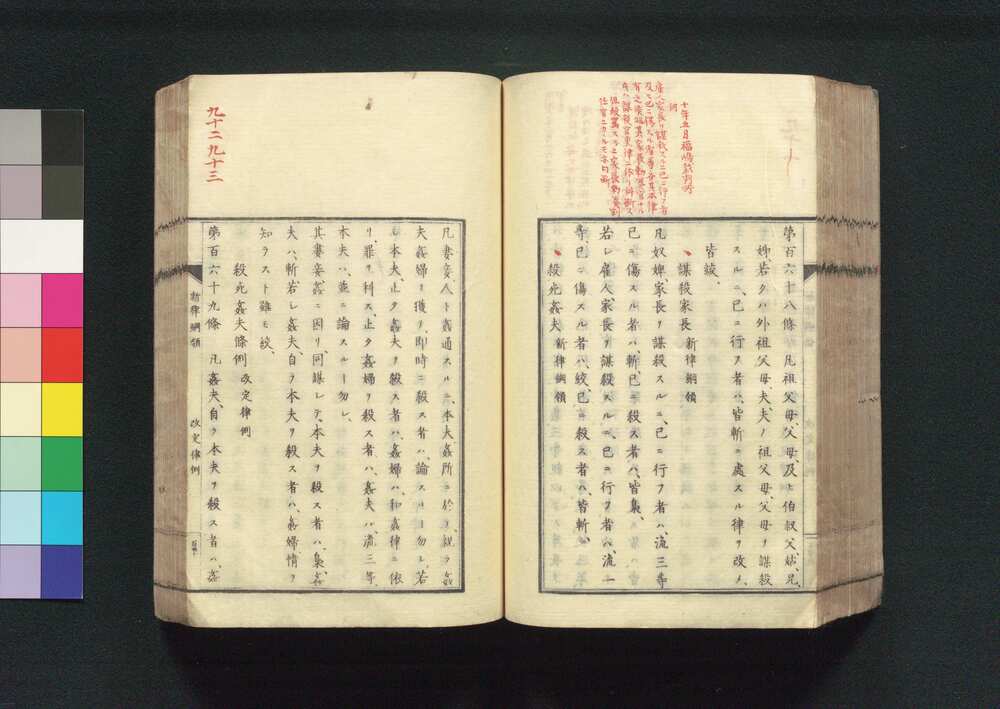 十年五月福嶋裁判所
伺
雇人家長ヲ謀殺スルニ已ニ行フ者
及ヒ已ニ傷スル者
第百六十八條 凡祖父母、父母及ヒ伯叔父、姑、兄、
姉、若クハ外祖父母、夫、夫ノ祖父母、父母ヲ謀殺
スルニ、已ニ行フ者ハ、皆斬ニ處スル律ヲ改メ、
皆絞、
謀殺家長 新律綱領
凡奴婢家長ヲ謀殺スルニ、已ニ行フ者ハ、流三等
已ニ傷スル者ハ、斬、已ニ殺ス者ハ、皆梟、
若シ雇人、家長ヲ謀殺スルニ、已ニ行フ者ハ、流一
等、已ニ傷スル者ハ、絞、已ニ殺ス者ハ、皆斬、
殺死姦夫 新律綱領
凡妻妾人ト姦通スルニ、本夫姦所ニ於テ、親ラ姦
夫姦婦ヲ獲テ、即時ニ殺ス者ハ、論スルヿ勿レ、若
シ本夫、止タ姦夫ヲ殺ス者ハ、姦婦ハ、和姦律ニ依
リ、罪ヲ科ス、止タ姦婦ヲ殺ス者ハ、姦夫ハ、流三等、
本夫ハ、並ニ論スルヿ勿レ、
其妻妾、姦ニ因リ、同謀シテ、本夫ヲ殺ス者ハ、梟、姦
夫ハ、斬、若シ姦夫、自ラ本夫ヲ殺ス者ハ、姦婦情ヲ
知ラスト雖モ、絞、
殺死姦夫條例 改定律例
第百六十九條 凡姦夫、自ラ本夫ヲ殺ス者ハ、姦
新律綱領
改定律例
九十二九十三